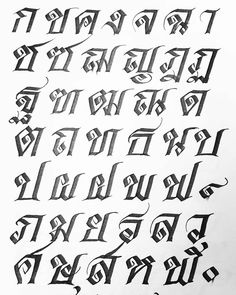 ก ข ค ง จ ฉ น า
ช ซ ฌ ญ ฎ ฏ
ฐ ฑ ฒ ณ ด
ต ถ ท ธ น บ
ป ผ ฝ พ ฟ
ภ ม ย ร ล ว
ศ ษ ส ห ฬ